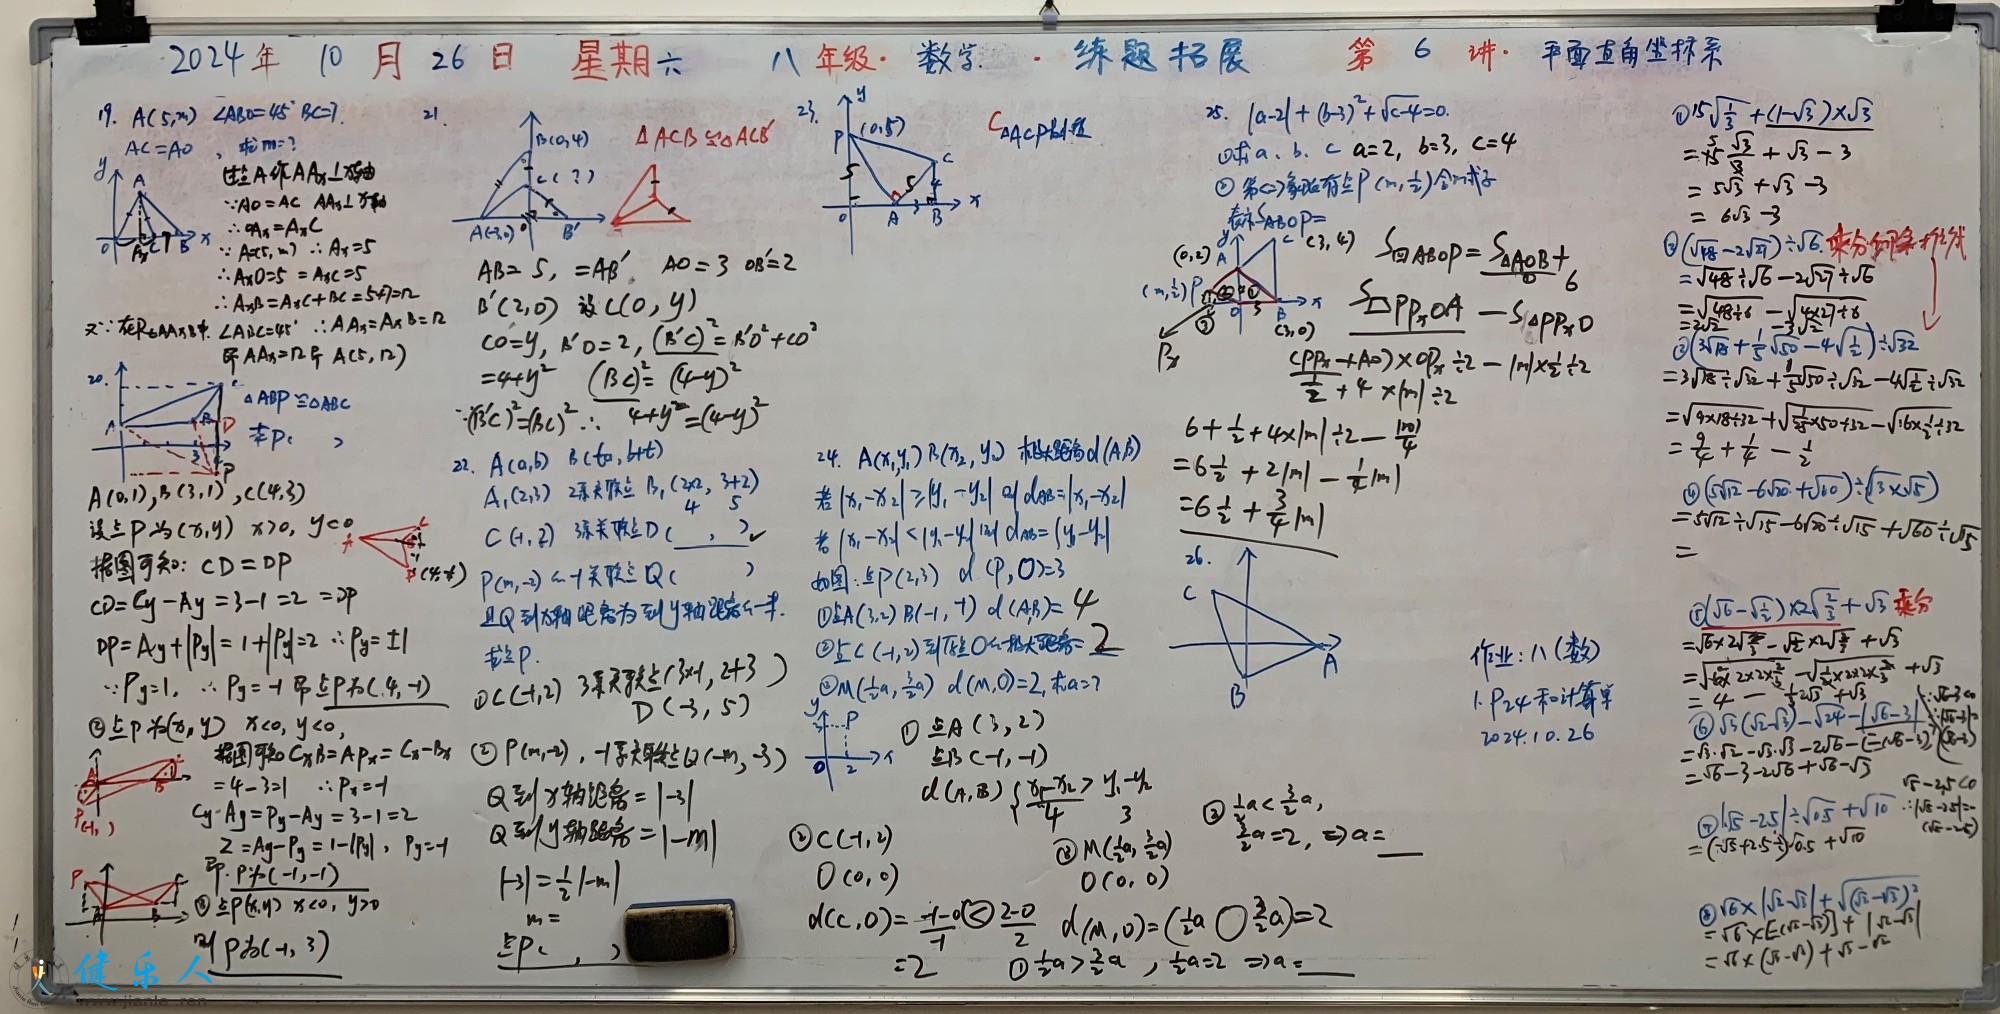 2024年 10月26日 星期六 八年级·数学·练题拓展 第6讲·平面直角坐标系
19. A(5,m) ∠ABO=45° BC=7
AC=AO,求m=?
过点A作AAx⊥x轴
∵AO=AC AAx⊥x轴
∴OAx=AxC
∵A(5,m) ∴Ax=5
∴AxO=5=AxC=5
∴AxB=AxC+BC=5+7=12
又∵在Rt△AAxB中 ∠ABC=45° ∴AAx=AxB=12
即AAx=12 即A(5,12)
20.
△ABP≌△ABC
求P( )
A(0,1),B(3,1),C(4,3)
设点P为(x,y) x>0, y<0
据图可知: CD=DP
CD=Cy-Ay=3-1=2=DP
DP=Ay+|Py|=1+|Py|=2 ∴Py=±1
∵Py=1, ∴Py=-1 即点P为(4,-1)
②点P为(x,y) x<0,y<0,
据图可知CxB=APx=Cx-Bx
=4-3=1 ∴Px=-1
Cy-Ay=Py-Ay=3-1=2
2=Ay-Py=1-|Py|, Py=-1
即P为(-1,-1)
③点P(x,y) x<0,y>0
则P为(-1,3)
21.
B(0,4)
C(?)
A(-3,0) O B'
△ACB≌△ACB'
AB=5,=AB' AO=3 OB'=2
B'(2,0) 设C(0,y)
CO=y, B'O=2, (B'C)²=B'O²+CO²
=4+y² (BC)²=(4-y)²
∵(B'C)²=(BC)²∴ 4+y²=(4-y)²
22. A(a,b) B(ta,b+t)
A₁(2,3) 2系关联点B₁(2×2,3+2)
4 5
C(-1,2) 3系关联点D( , )
P(m,-2) -1关联点Q( )
且Q到x轴距离为到y轴距离一半.
求点P.
①C(-1,2) 3系关联点(3×-1,2+3)
D(-3,5)
②P(m,-2),-1系关联点Q(-m,-3)
Q到x轴距离=|-3|
Q到y轴距离=|-m|
|-3|=½|-m|
m=
点P( , )
23.
P (0,5)
C△ACP的周长
24. A(x₁,y₁) B(x₂,y₂) 极大距离d(AB)
若|x₁-x₂|≥|y₁-y₂| 则dAB=|x₁-x₂|
若|x₁-x₂|<|y₁-y₂| 则dAB=|y₁-y₂|
如图:点P(2,3) d(P,O)=3
①点A(3,2) B(-1,-1) d(A,B)=4
②点C(-1,2)到原点O极大距离=2
③M(½a,3/2a) d(M,O)=2,求a=?
①点A(3,2)
点B(-1,-1)
d(A,B){x₁-x₂>y₁-y₂
4 3
②C(-1,2)
O(0,0)
d(C,O)=-1-0<2-0
-1 2
=2
③M(½a,3/2a)
O(0,0)
d(M,O)=(½a○3/2a)=2
①½a>3/2a, ½a=2 ⇒a=__
②½a<3/2a,
3/2a=2, ⇒a=__
25. |a-2|+(b-3)²+√c-4=0.
①求a、b、c a=2, b=3, c=4
②第(二)象限有点P(m,½)含m式子
表示SABOP=
(0,2) A C(3,4)
(m,½)P
(3,0)
Px
S四ABOP=S△AOB+
6
SPPxOA-S△PPxO
(PPx+AO)×OPx÷2-|m|×½÷2
½+4×|m|÷2
6+½+4×|m|÷2-|m|/4
=6½+2|m|-¼|m|
=6½+¾|m|
26.
C
A
B
作业:八(数)
1.P24和计算单
2024.10.26
①15√⅓+(1-√3)×√3
=15√3/3+√3-3
=5√3+√3-3
=6√3-3
②(√48-2√27)÷√6 乘分
=√48÷√6-2√27÷√6
=√48÷6-√4×27÷6
=2√2-3√2
③(3√18+⅕√50-4√½)÷√32
=3√18÷√32+⅕√50÷√32-4√½÷√32
=√9×18÷32+√1/25×50÷32-√16×½÷32
=9/4+¼-½
④(5√12-6√20+√60)÷(√3×√5)
=5√12÷√15-6√20÷√15+√60÷√15
=
⑤(√6-√½)×2√⅔+√3 乘分
=√6×2√⅔-√½×2√⅔+√3
=√6×2×2×⅔-√½×2×2×⅔+√3
⑥√3(√2-√3)-√24-|√6-3|
=√3·√2-√3·√3-2√6-[-(√6-3)]
=√6-3-2√6+√6-√3
⑦|√5-2.5|÷√0.5+√10
=(-√5+2.5)÷√0.5+√10
√5-2.5<0
∴|√5-2.5|=-
(√5-2.5)
⑧√6×|√2-√3|+√(√2-√3)²
=√6×[-(√2-√3)]+|√2-√3|
=√6×(√3-√2)+√3-√2
健乐人
www.jianle.ren